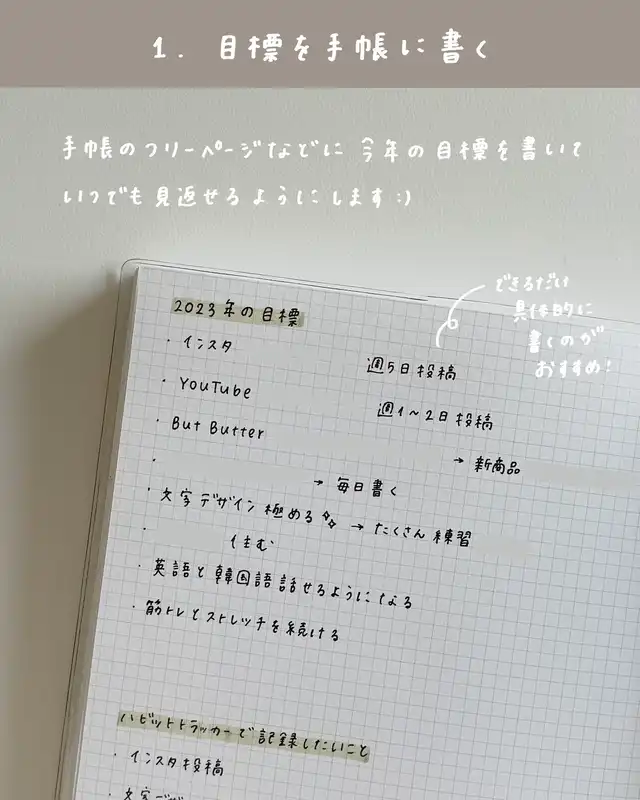 1. 目標を手帳に書く
手帳のフリーページなどに 今年の目標を書いて
いつでも見返せるようにします:)
できるだけ
具体的に
書くのが
おすすめ!
2023年の目標
・インスタ 週5日投稿
・YouTube 週1〜2日投稿
・But Butter → 新商品
・ → 毎日書く
・文字デザイン極める → たくさん練習
・ 住む
・英語と韓国語話せるようになる
・筋トレとストレッチを続ける
ハビットトラッカーで記録したいこと
・インスタ投稿
・文字デザ